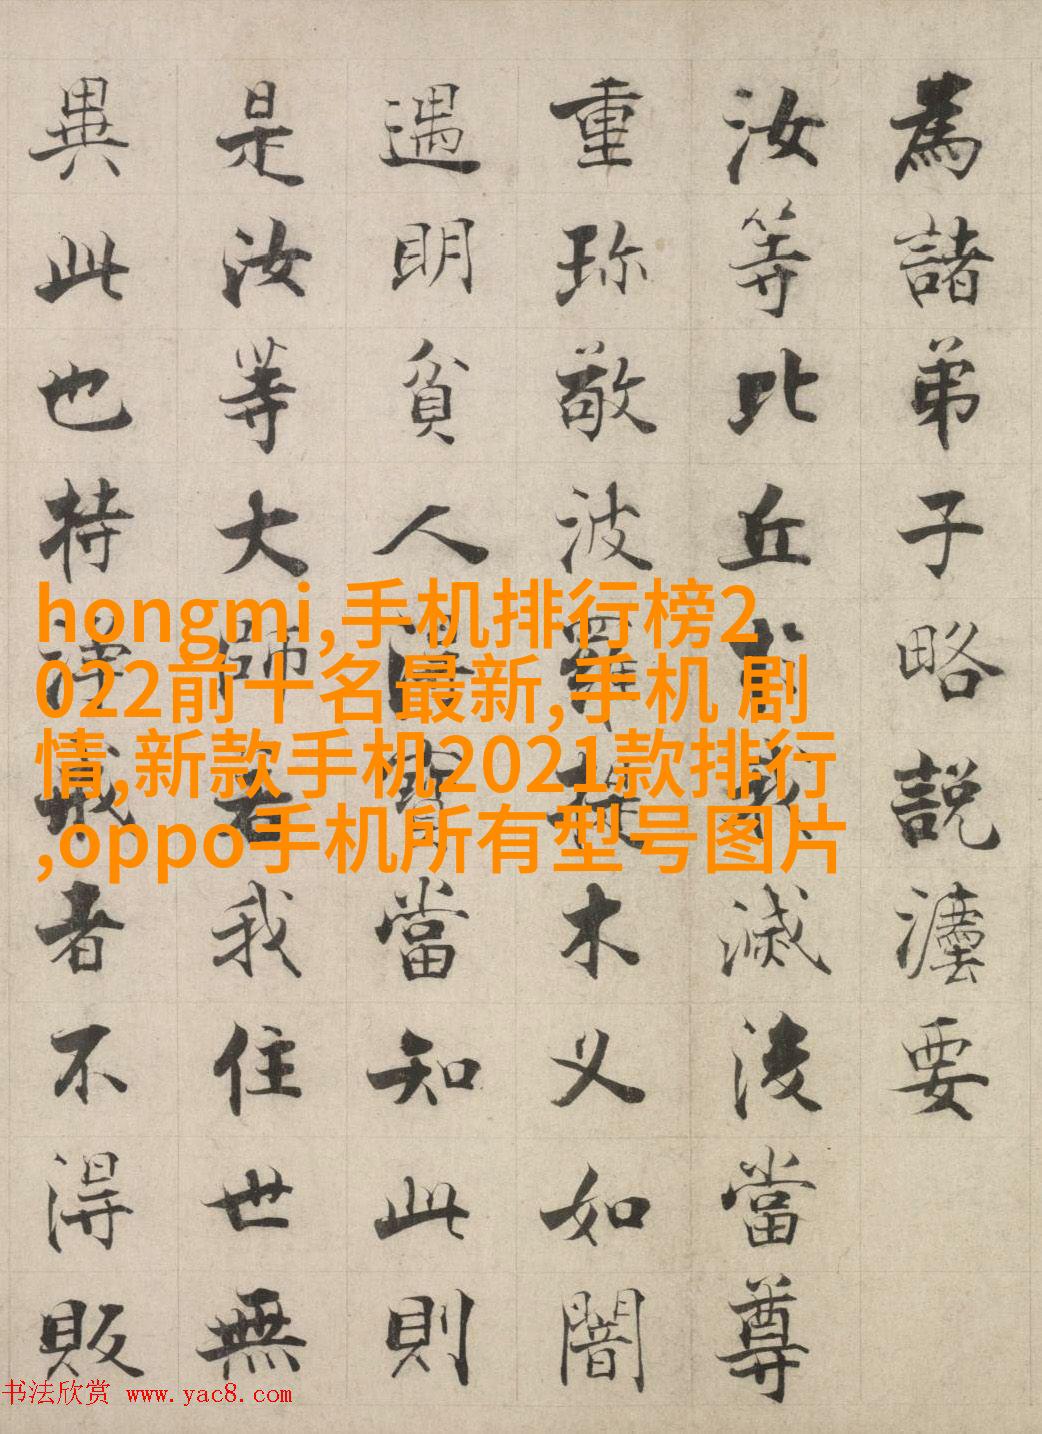 為諸弟子略説灋要
汝等比丘於我滅後當尊
重珎敬波羅提木义如闇
遇明貧人得寶當知此則
是汝等大師若我住世無
異此也持淨戒者不得販
hongmi,手机排行榜2
022前十名最新,手机 剧
情,新款手机2021款排行
,oppo手机所有型号图片
书法欣赏 www.yac8.com